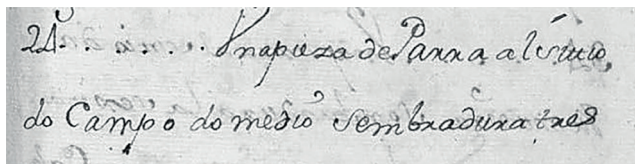 24. . . . . . Vna pieza de Parra al Sitio
do Campo do medio Sembradura tres